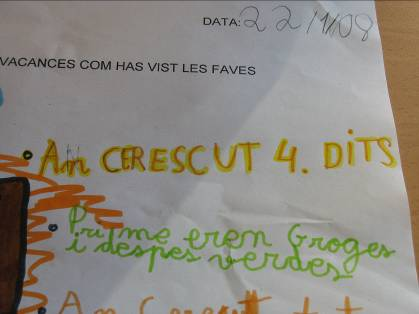 DATA: 22/1/09
VACANCES COM HAS VIST LES FAVES
An CERESCUT 4. DITS
Prime eren Groges
i despes verdes
An